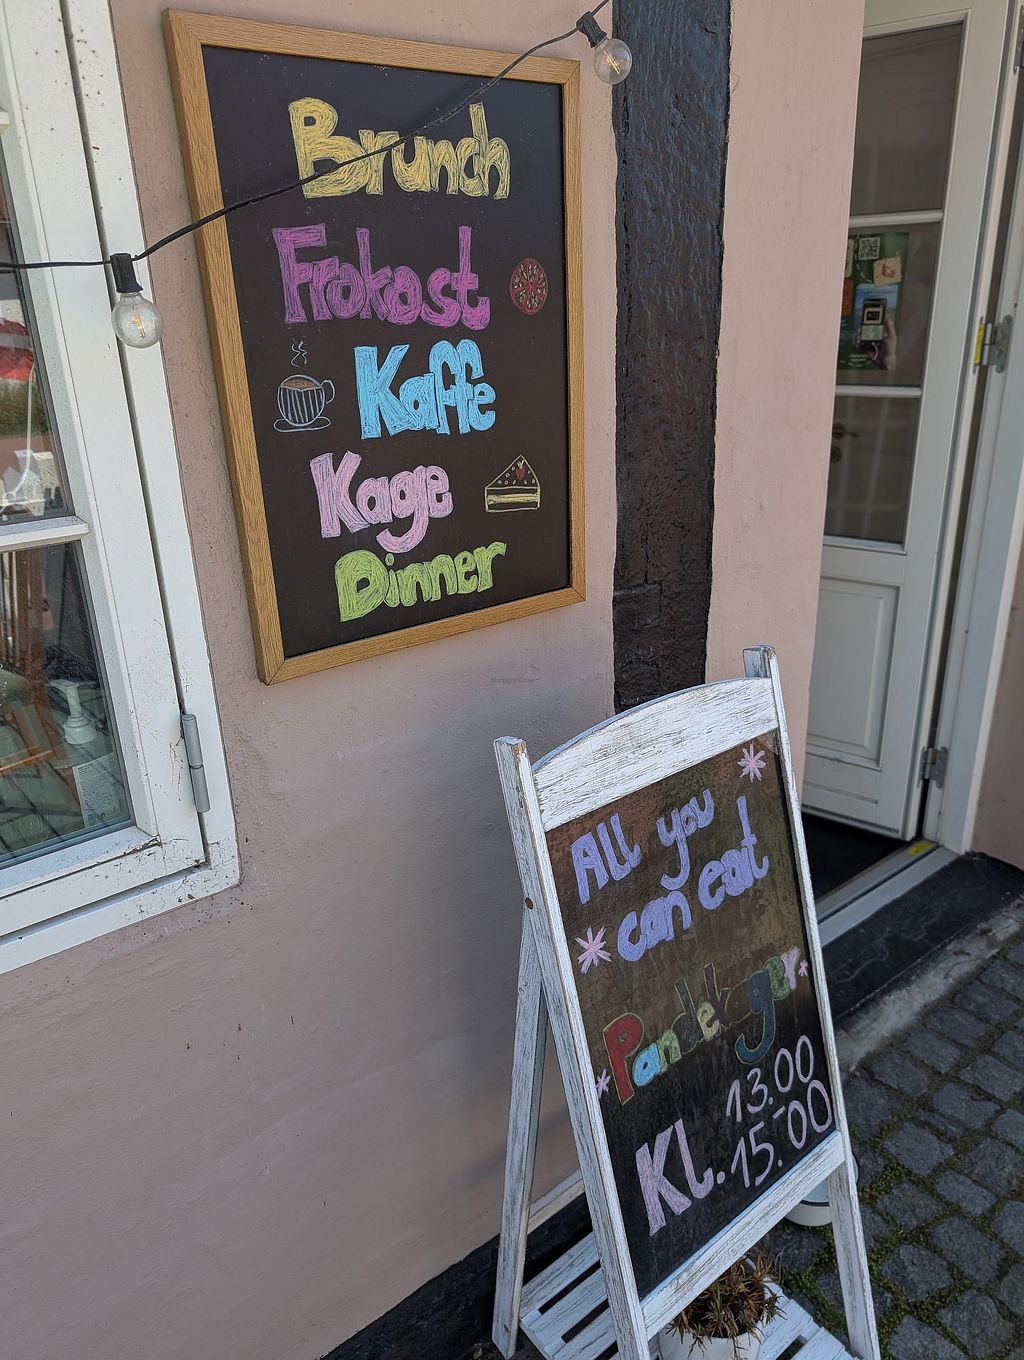 Brunch
Frokost
Kaffe
Kage
Dinner
HappyCow
All you
can eat
Pandekager
Kl. 13.00
15.00